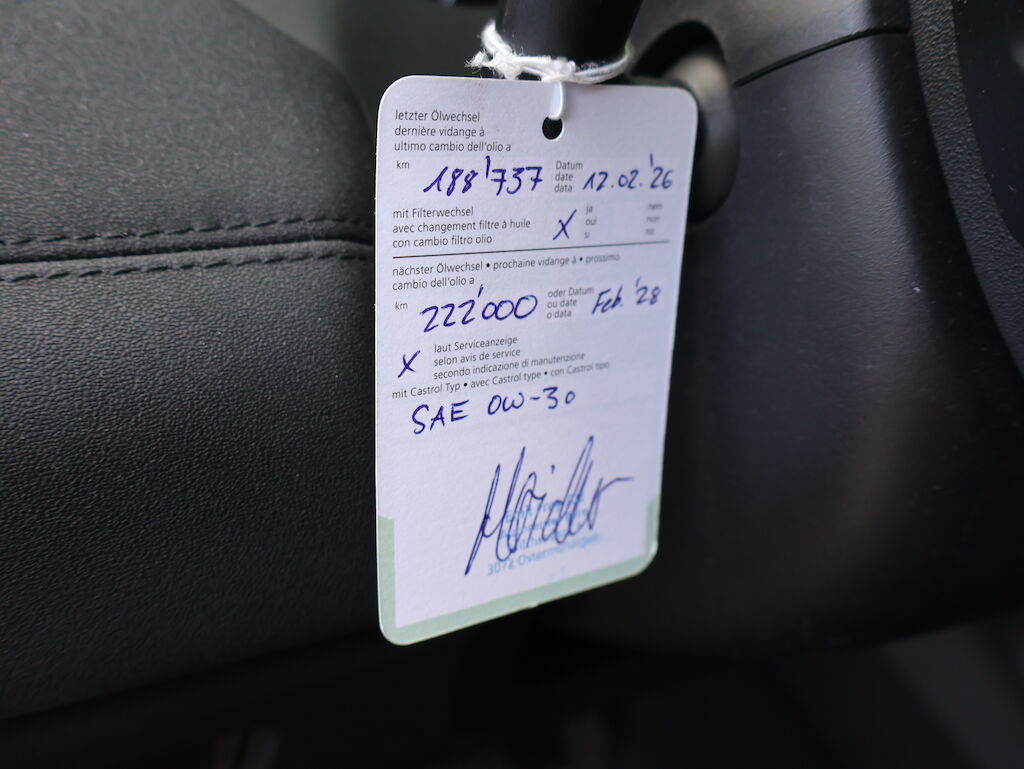 letzter Ölwechsel
dernière vidange à
ultimo cambio dell'olio a
km 188'737 Datum date data 12.02.'26
mit Filterwechsel
avec changement filtre à huile
con cambio filtro olio
X ja nein
oui non
si no
nächster Ölwechsel • prochaine vidange à • prossimo
cambio dell'olio a
km 222'000 oder Datum ou date o data Feb. '28
X laut Serviceanzeige
selon avis de service
secondo indicazione di manutenzione
mit Castrol Typ • avec Castrol type • con Castrol tipo
SAE 0W-30
3072 Ostermundigen